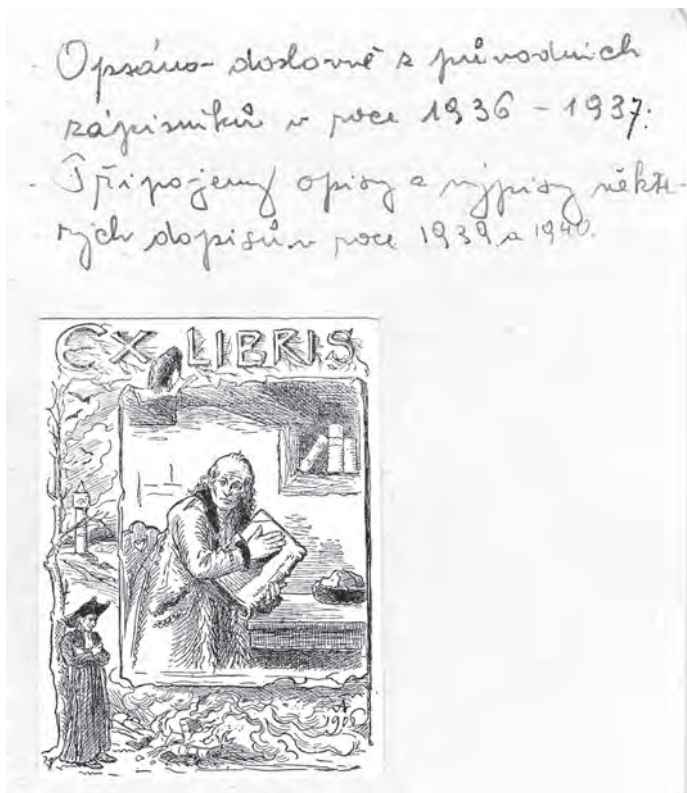 - Opsáno doslovně z původních
zápisníků v roce 1936 - 1937.
- Připojeny opisy a výpisy někte-
rých dopisů v roce 1939 a 1940.
EX LIBRIS